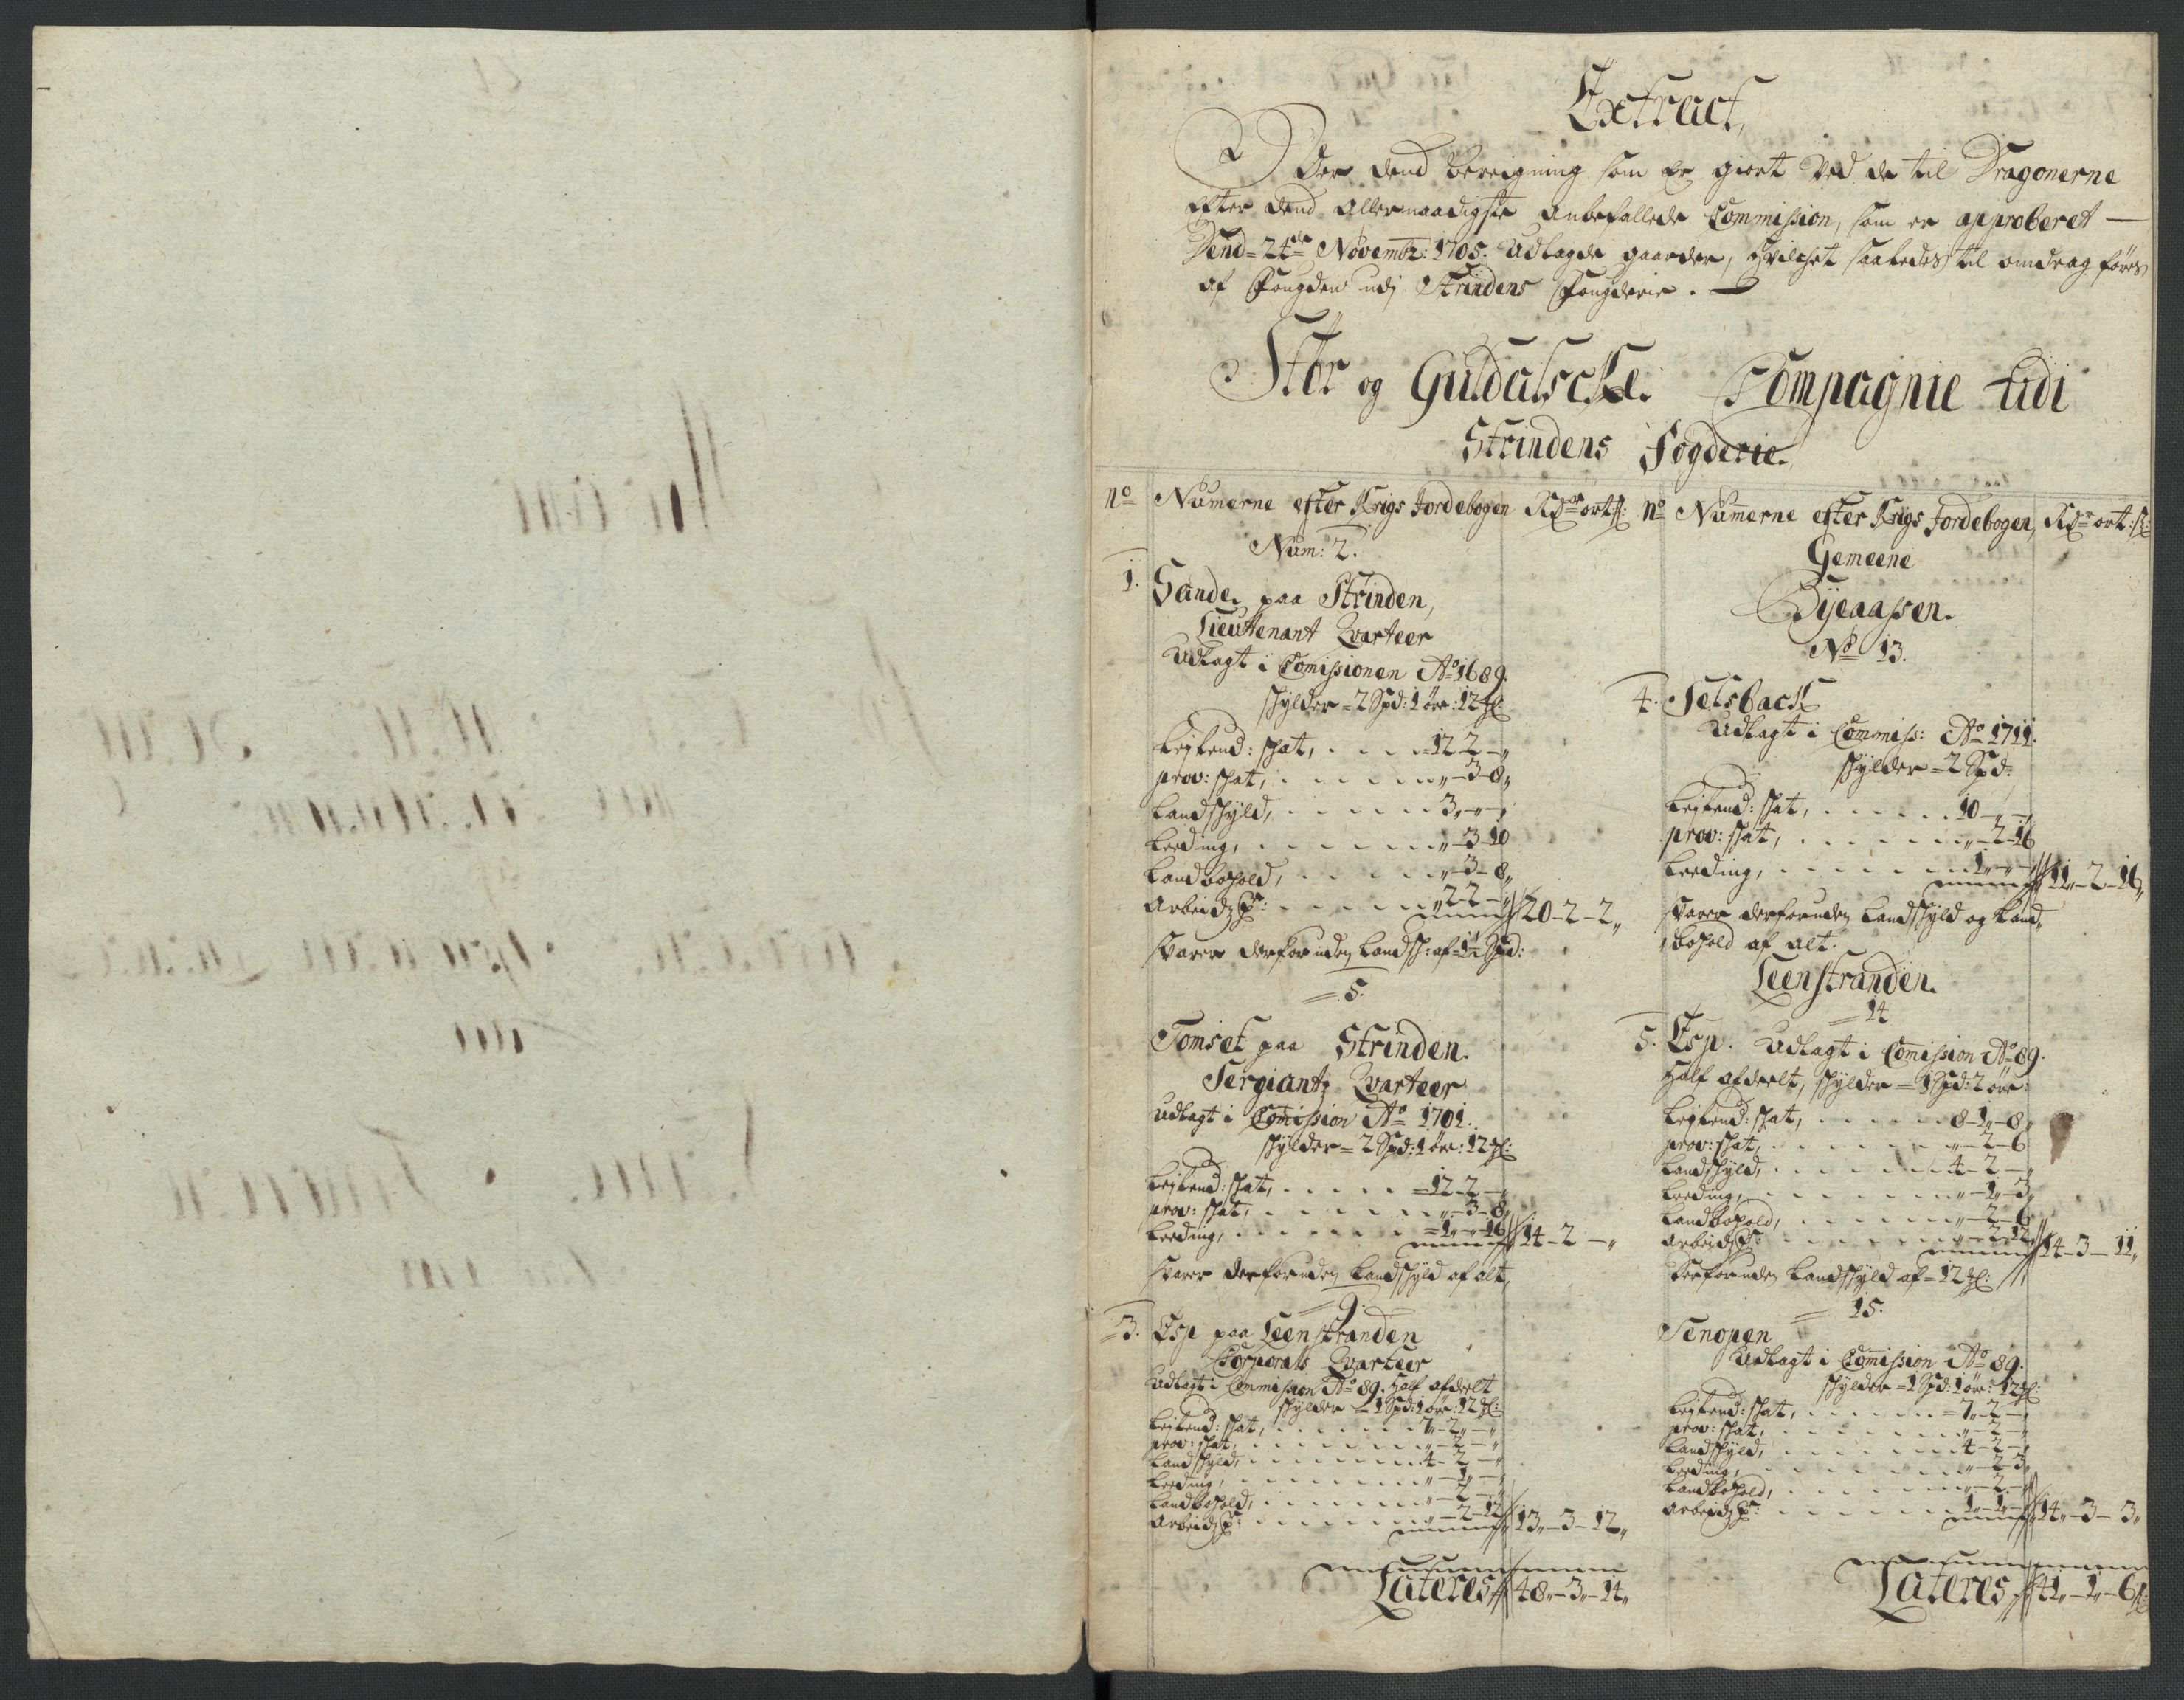 Extract,
Over dend beregning som er giort ved de til Dragonerne
efter dend allernaadigste anbefallede Commission, som er approberet —
Dend = 24de Novembr: 1705. Udlagde gaarder, hvilchet saaledes til omdrag føres
af Fougden udj Strindens Fougderie.
Stør og Guldalsche Compagnie udi
Strindens Fogderie.
No Numerne efter Krigs Jordebogen Rdr ort ß:
Num: 2.
1. Sande paa Strinden,
Lieutenant Qvarteer
Udlagt i Comissionen Ao 1689.
schylder = 2 Spd: 1 øre: 12 ʒl:
Leylend: schat, . . . . = 12 2 — „
prov: schat, . . . . . „ — 3 - 8 „
Landschyld, . . . . . 3 „ — „ — „
Leeding, . . . . . . „ — 3 - 10
Landbohold, . . . . . „ — 3 — 8 „
Arbeidz P: . . . . . „ 2 2 — „ 20 - 2 - 2 „
svarer derforuden Landsch: af 1½ Spd:
= 5.
Tomset paa Strinden.
Sergiantz Qvarteer
Udlagt i Comission Ao 1701.
schylder = 2 Spd: 1 øre: 12 ʒl:
Leylend: schat, . . . . = 12 - 2 — „
prov: schat, . . . . . „ — 3 — 8 „
Leeding, . . . . . = 1 „ — „ 16 14 - 2 — „
svarer derforuden Landschyld af alt,
= 9.
= 3. Esp paa Leenstranden
Corporals Qvarteer
Udlagt i Commission Ao 89. Half afdeelt
schylder = 1 Spd: 1 øre: 12 ʒl:
Leylend: schat, . . . . . 7 „ - 2 „ — „
prov: schat, . . . . . „ — 2 — „
Landschyld, . . . . . 4 - 2 — „
Leeding, . . . . . „ — 1 „ — „
Landbohold, . . . . . „ — 2 — „
Arbeidz P: . . . . . „ — 2 — 12 13 „ — 3 — 12 „
Lateres 48 „ — 3 „ — 14 „
No Numerne efter Krigs Jordebogen, Rdr ort: ß:
Gemeene
Byeaassen.
No 13.
4. Selsbach
Udlagt i Commiss: Ao 1711.
schylder = 2 Spd:
Leylend: schat, . . . . . 10 — „ — „
prov: schat, . . . . . „ — 2 — 16
Leeding, . . . . . 1 „ — „ — „ 11 „ - 2 - 16 „
svarer derforuden Landschyld og Land„
bohold af alt.
Leenstranden.
= 14
5. Esp. Udlagt i Comission Ao 89.
Half afdeelt, schylder = 1 Spd: 2 øre:
Leylend: schat, . . . . . 8 - 1 „ — 8 „
prov: schat, . . . . . „ — 2 — 6
Landschyld, . . . . . 4 - 2 — „
Leeding, . . . . . „ — 1 „ — 3 „
Landbohold, . . . . . „ — 2 — 6 „
Arbeidz P: . . . . . „ — 2 12 14 - 3 — 11 „
Derforuden Landschyld af = 12 ʒl:
= 15.
Senopen
Udlagt i Comission Ao 89.
schylder = 1 Spd: 1 øre: 12 ʒl:
Leylend: schat, . . . . . = 7 „ - 2 — „
prov: schat, . . . . . „ — 2 — „
Landschyld, . . . . . 4 - 2 — „
Leeding, . . . . . „ — 2 - 3 „
Landbohold, . . . . . „ — 2 — „
Arbeidz P: . . . . . 1 „ — 1 „ — „ 14 „ — 3 — 3 „
Lateres 41 „ — 1 „ — 6 ß: